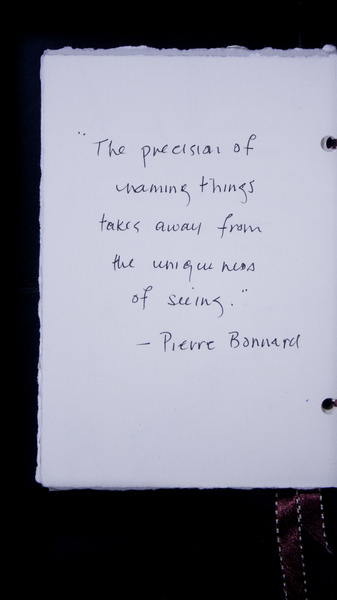 "The precision of
naming things
takes away from
the uniqueness
of seeing."
– Pierre Bonnard